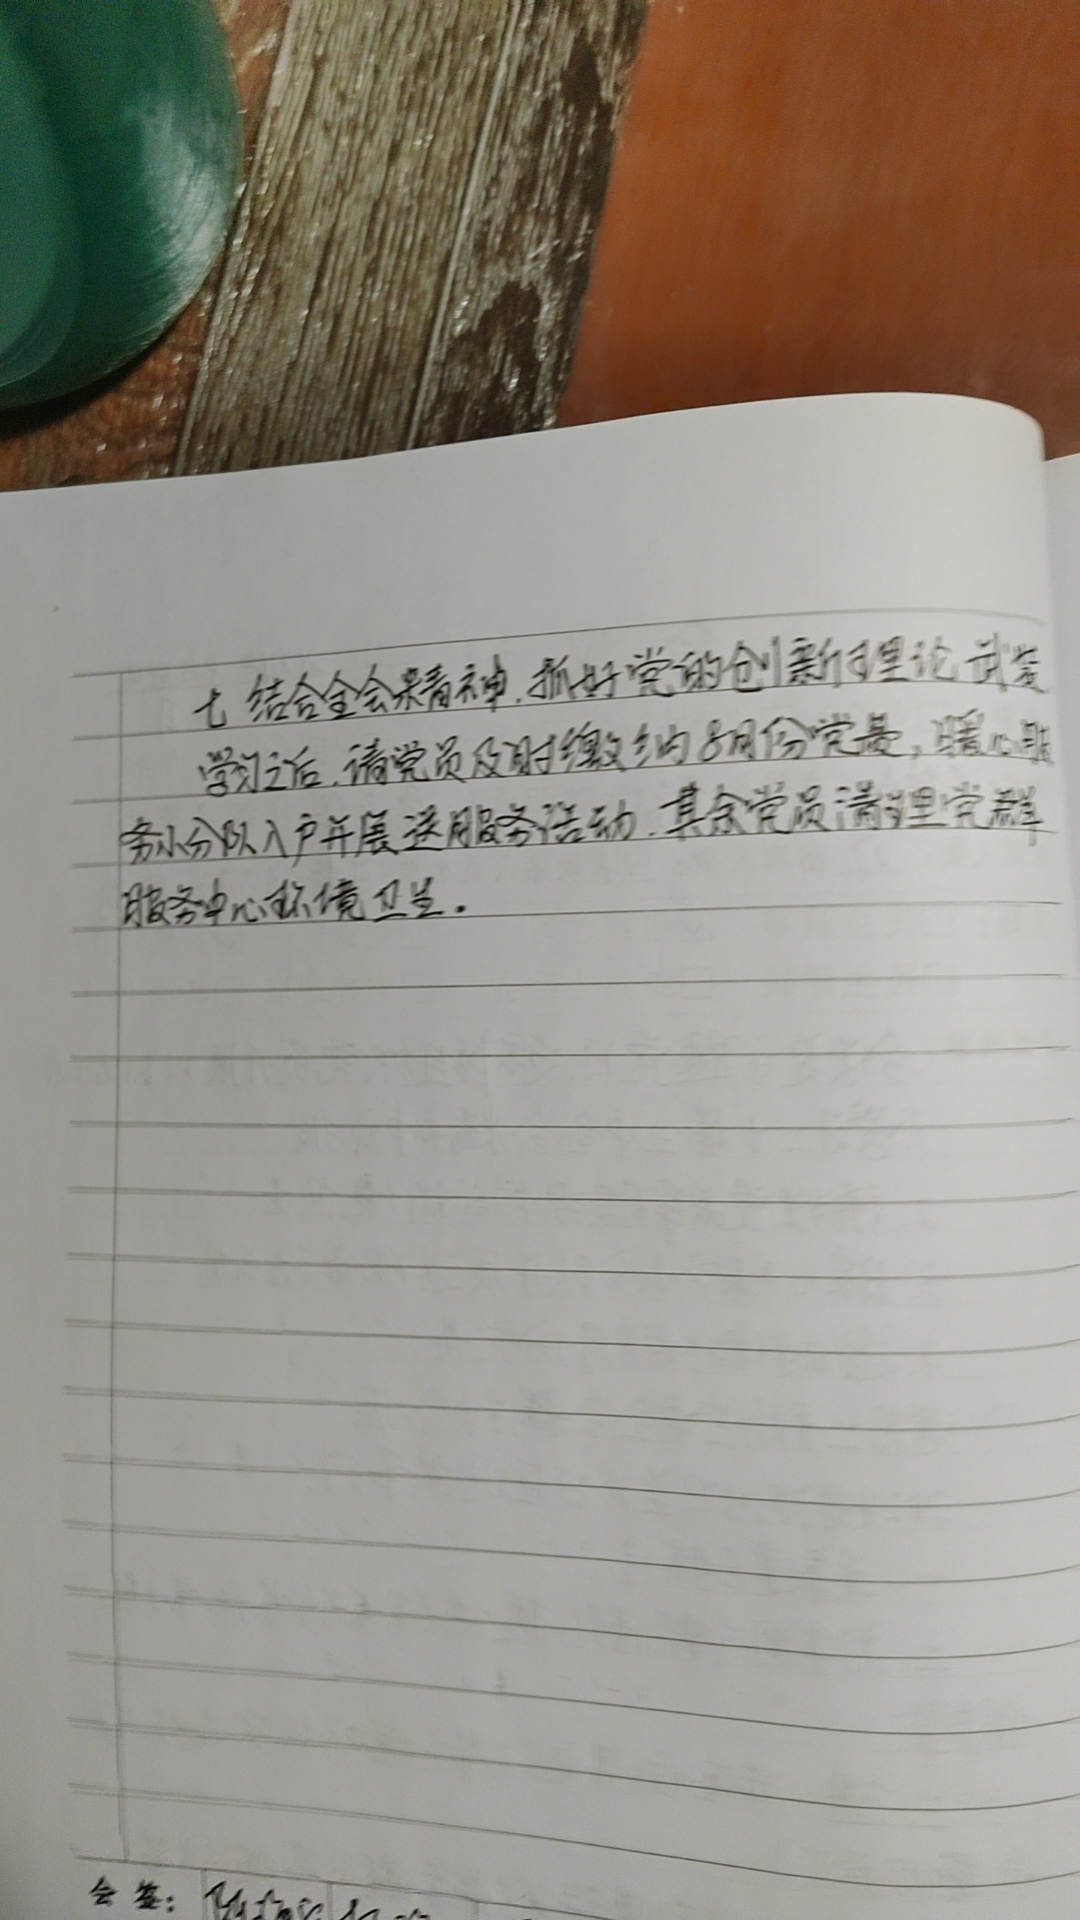 七 结合全会精神,抓好党的创新理论武装
学习之后,请党员及时缴纳8月份党费,暖心服
务小分队入户开展送服务活动,其余党员清理党群
服务中心环境卫生。
会签: